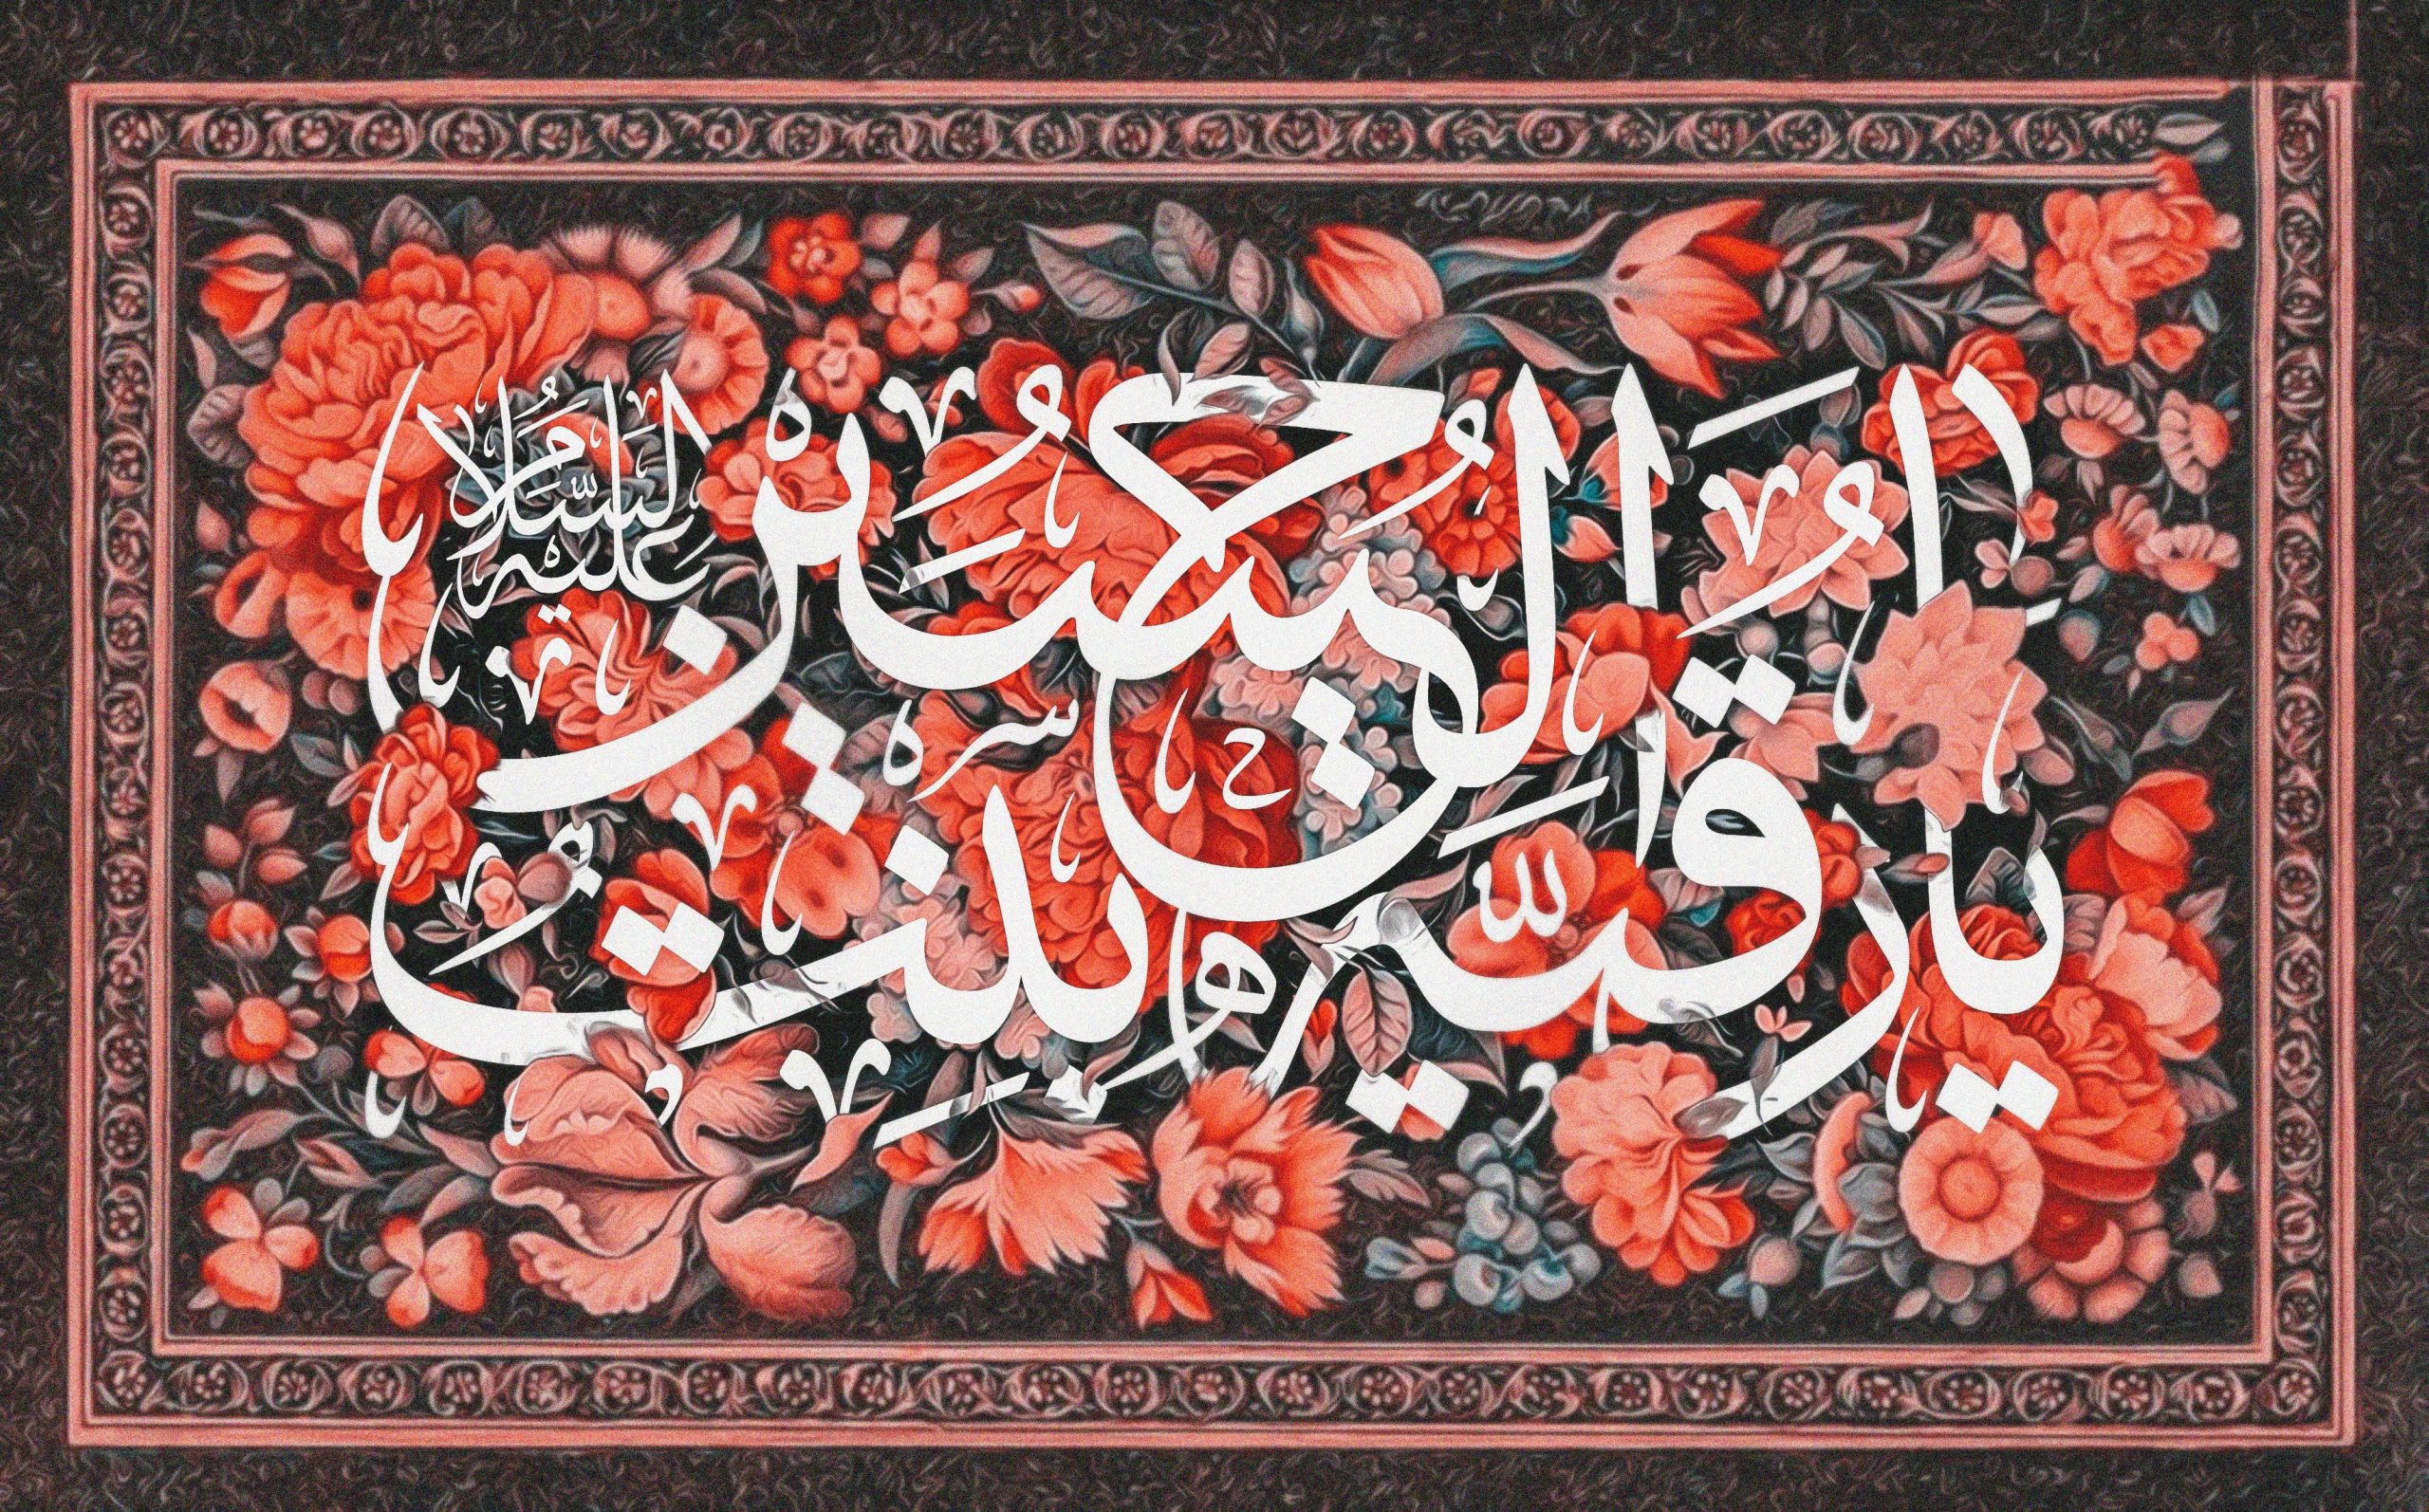 يا رقية بنت الحسين
عليه السلام